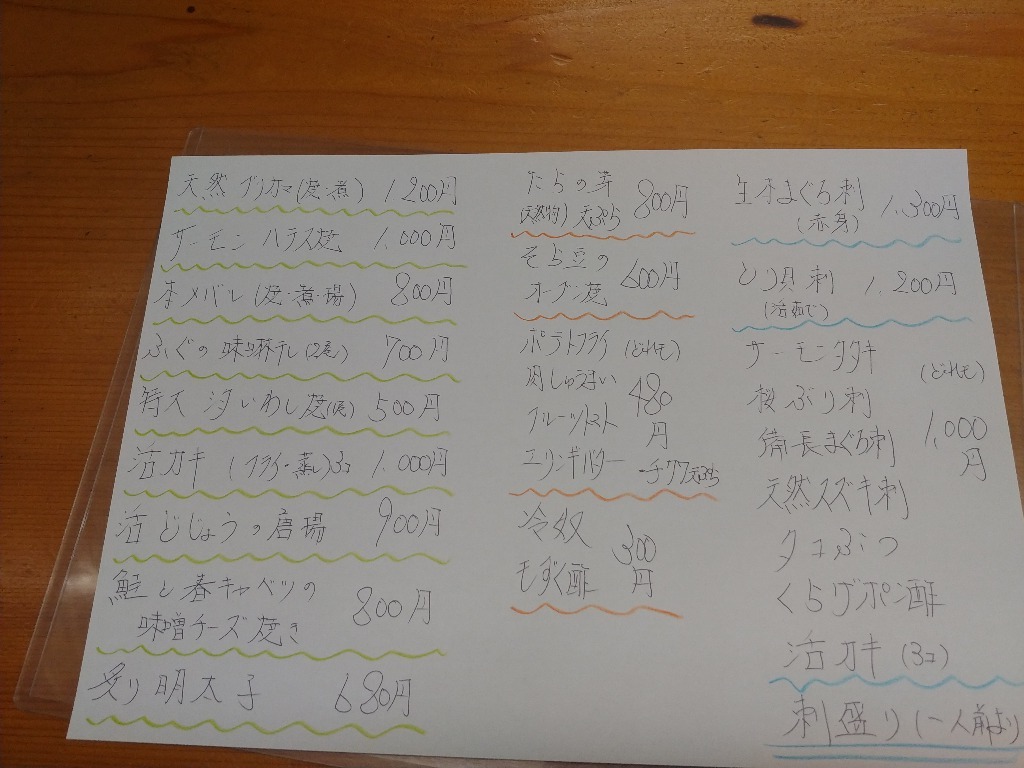 天然ブリカマ(焼・煮) 1,200円
サーモンハラス焼 1,000円
本メバル(焼・煮・揚) 800円
ふぐの味醂干し(2尾) 700円
特大 汐いわし焼 500円
活カキ (フライ・蒸し)3コ 1,000円
活どじょうの唐揚 900円
鮭と春キャベツの
味噌チーズ焼き 800円
炙り明太子 680円
たらの芽
(天然物) 天ぷら 800円
そら豆の
オーブン焼 600円
ポテトフライ (どれも)
肉しゅうまい 480
フルーツトマト 円
エリンギバター チクワ天ぷら
冷奴 300
もずく酢 円
生本まぐろ刺
(赤身) 1,300円
とり貝刺 1,200円
(活茹で)
サーモンタタキ (どれも)
桜ぶり刺
備長まぐろ刺 1,000
円
天然スズキ刺
タコぶつ
くらげポン酢
活カキ (3コ)
刺盛り(一人前より)